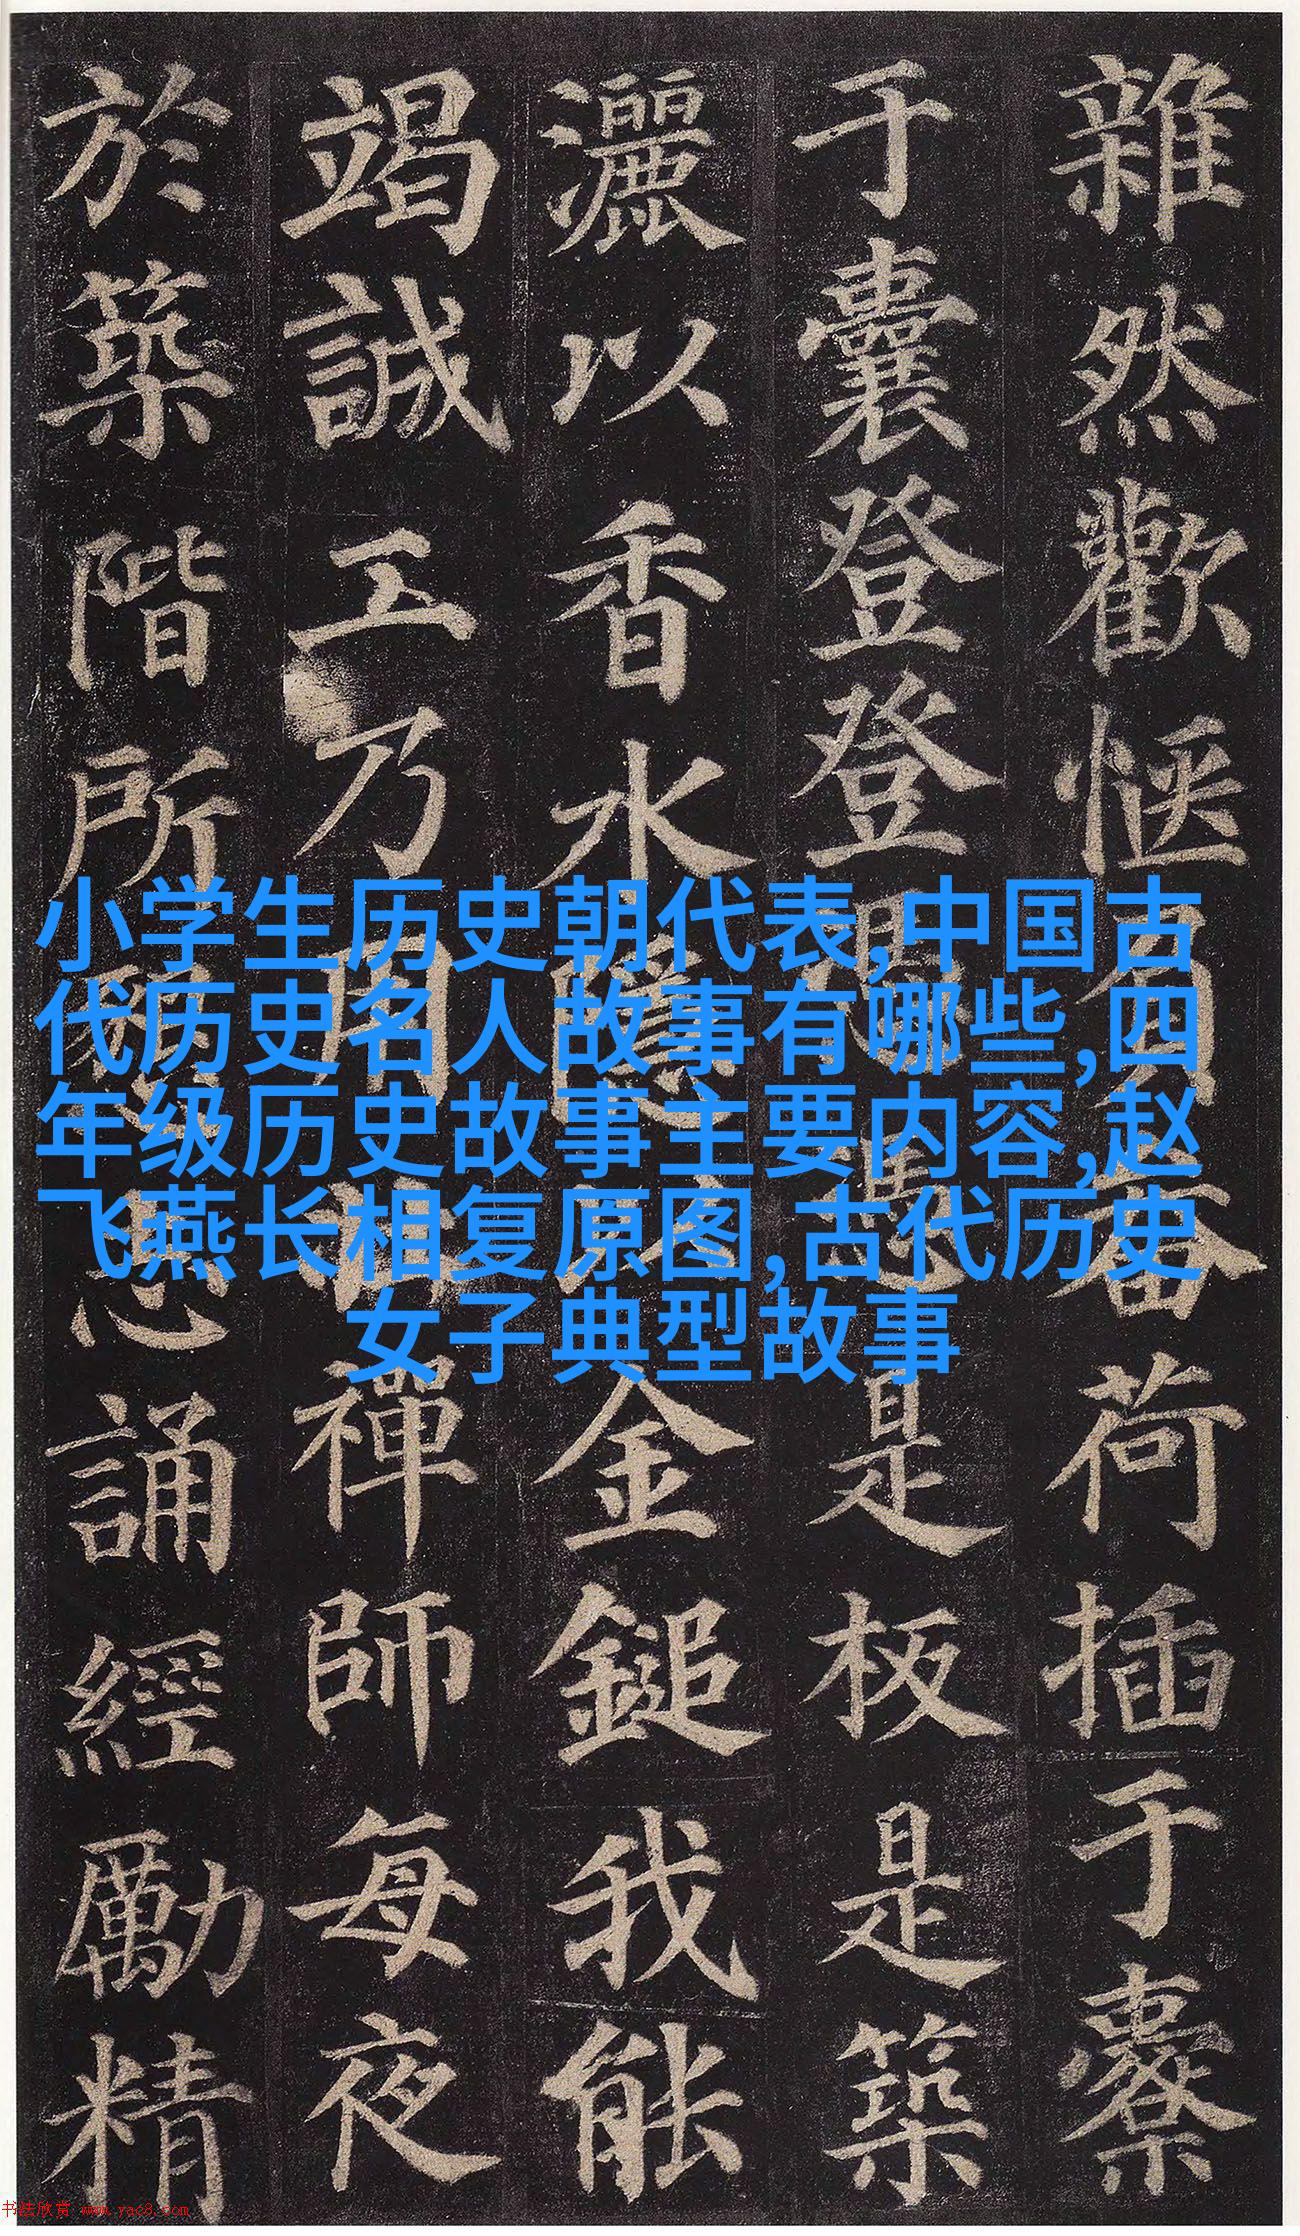 雜然歡愜負畚荷插于橐
于囊登登憑憑是板是築
灑以香水隱以金鎚我能
竭誠工乃用壯禪師每夜
於築階所懇志誦經勵精
小学生历史朝代表,中国古
代历史名人故事有哪些,四
年级历史故事主要内容,赵
飞燕长相复原图,古代历史
女子典型故事
书法欣赏 www.yac8.com